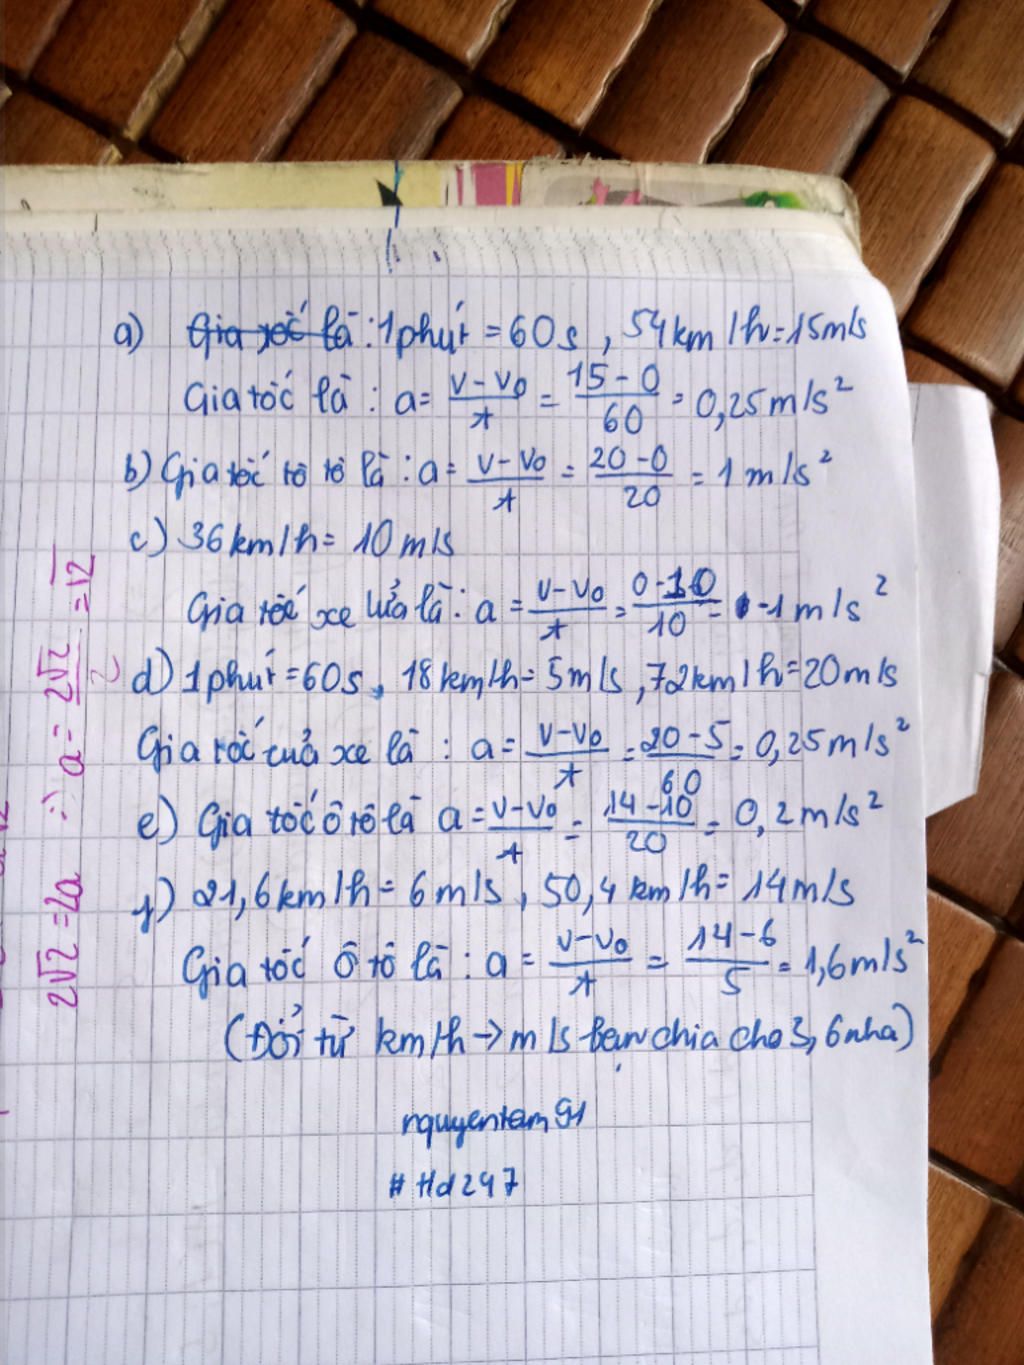 a) Gia tốc là : 1 phút = 60s , 54 km/h = 15m/s
Gia tốc là : a = v - v0 / t = 15 - 0 / 60 = 0,25 m/s²
b) Gia tốc tô tô là : a = v - v0 / t = 20 - 0 / 20 = 1 m/s²
c) 36 km/h = 10 m/s
Gia tốc xe lửa là : a = v - v0 / t = 0 - 10 / 10 = -1 m/s²
d) 1 phút = 60s , 18 km/h = 5 m/s , 72 km/h = 20 m/s
Gia tốc của xe là : a = v - v0 / t = 20 - 5 / 60 = 0,25 m/s²
e) Gia tốc ô tô là a = v - v0 / t = 14 - 10 / 20 = 0,2 m/s²
f) 21,6 km/h = 6 m/s , 50,4 km/h = 14 m/s
Gia tốc ô tô là : a = v - v0 / t = 14 - 6 / 5 = 1,6 m/s²
(Đổi từ km/h → m/s bạn chia cho 3,6 nha)
nguyentam91
# Hd247
2√2 = 2a ∴) a = 2√2 / 2 = √2